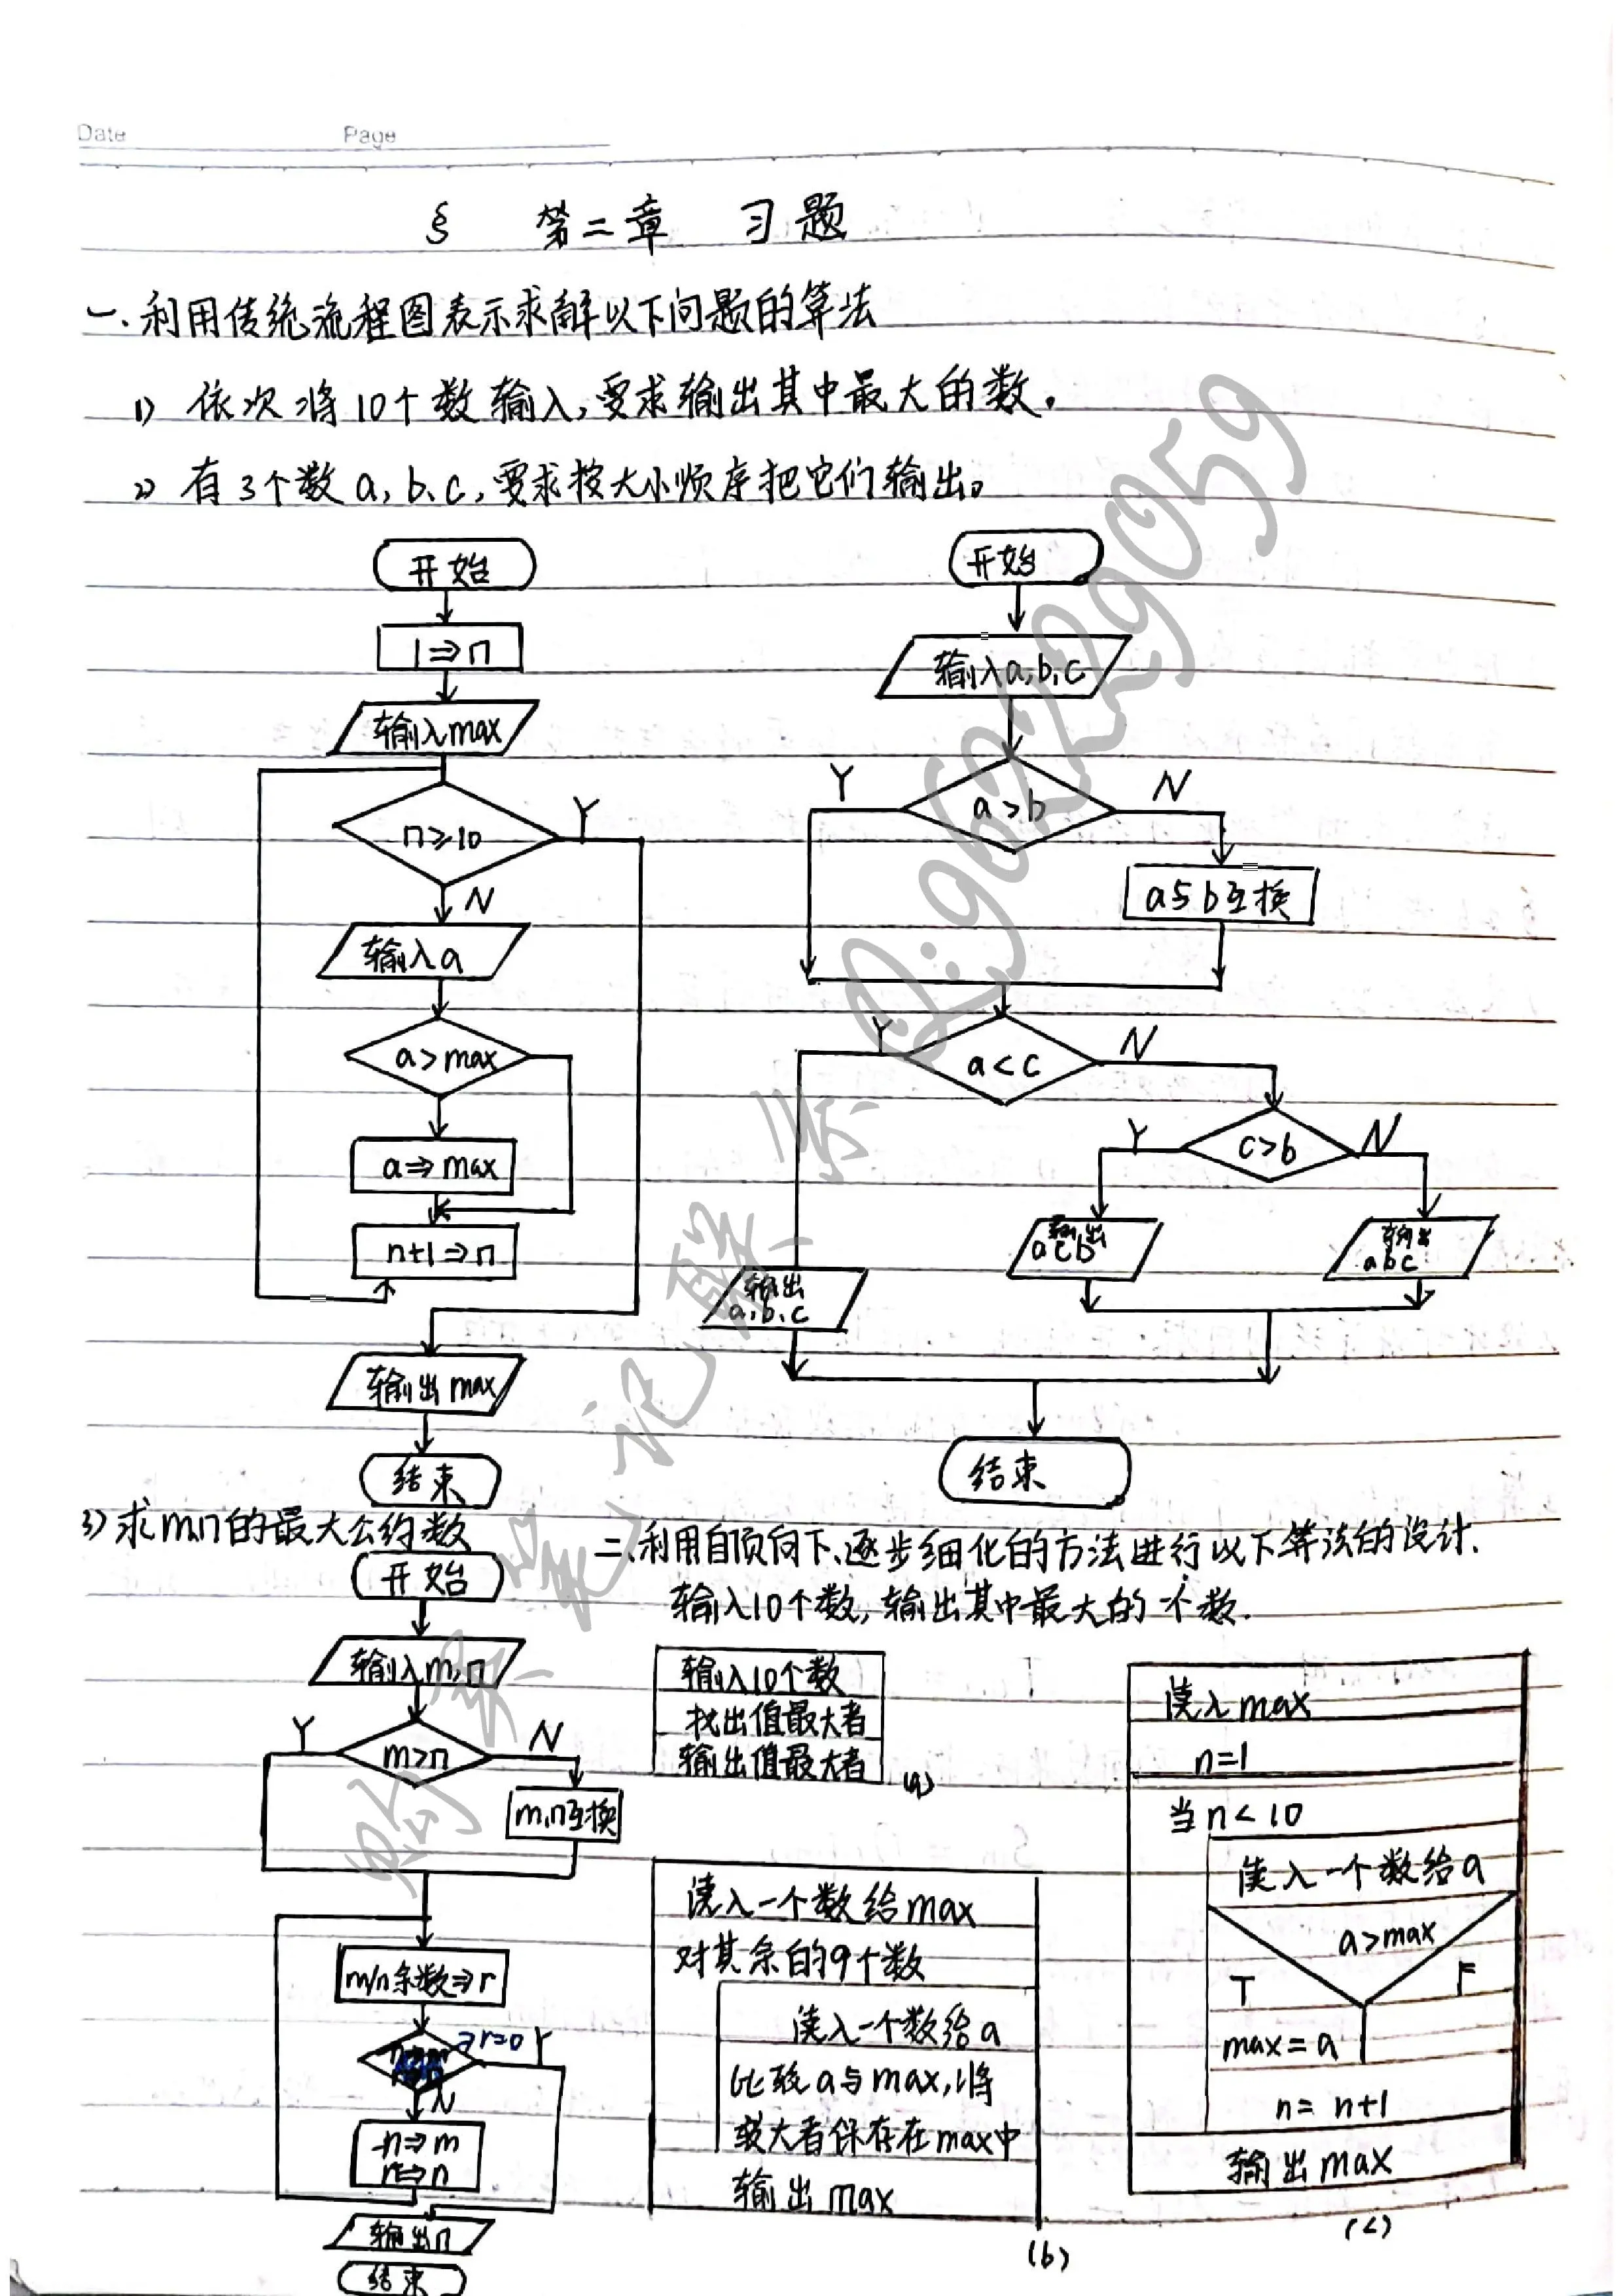 Date Page
§ 第二章 习题
一、利用传统流程图表示求解以下问题的算法
1) 依次将10个数输入,要求输出其中最大的数。
2) 有3个数a,b、c,要求按大小顺序把它们输出。
开始
1⇒n
输入max
n≥10
Y
N
输入a
a>max
a⇒max
n+1⇒n
输出max
结束
开始
输入a,b,c
Y a>b N
a与b互换
Y a<c N
Y c>b N
输出
acb
输出
abc
输出
a,b、c
结束
3) 求m,n的最大公约数
开始
输入m,n
Y m>n N
m,n互换
m/n余数⇒r
r=0 Y
N
n⇒m
r⇒n
输出n
结束
二、利用自顶向下、逐步细化的方法进行以下算法的设计.
输入10个数,输出其中最大的个数.
输入10个数
找出值最大者
输出值最大者
(a)
读入一个数给max
对其余的9个数
读入一个数给a
比较a与max,将
较大者保存在max中
输出max
(b)
读入max
n=1
当n<10
读入一个数给a
a>max
T F
max=a
n= n+1
输出max
(c)
Q:96229059